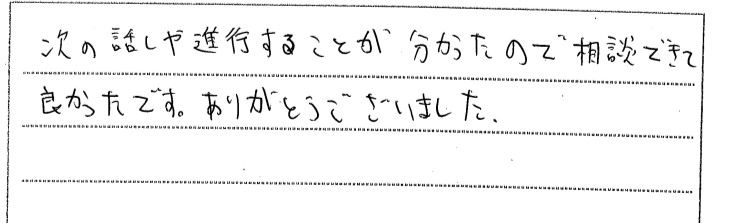 次の話しや進行することが分かったので相談できて
良かったです。ありがとうございました.